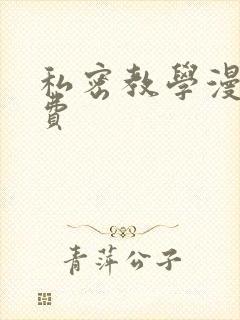 私密教學漫
費
青萍公子